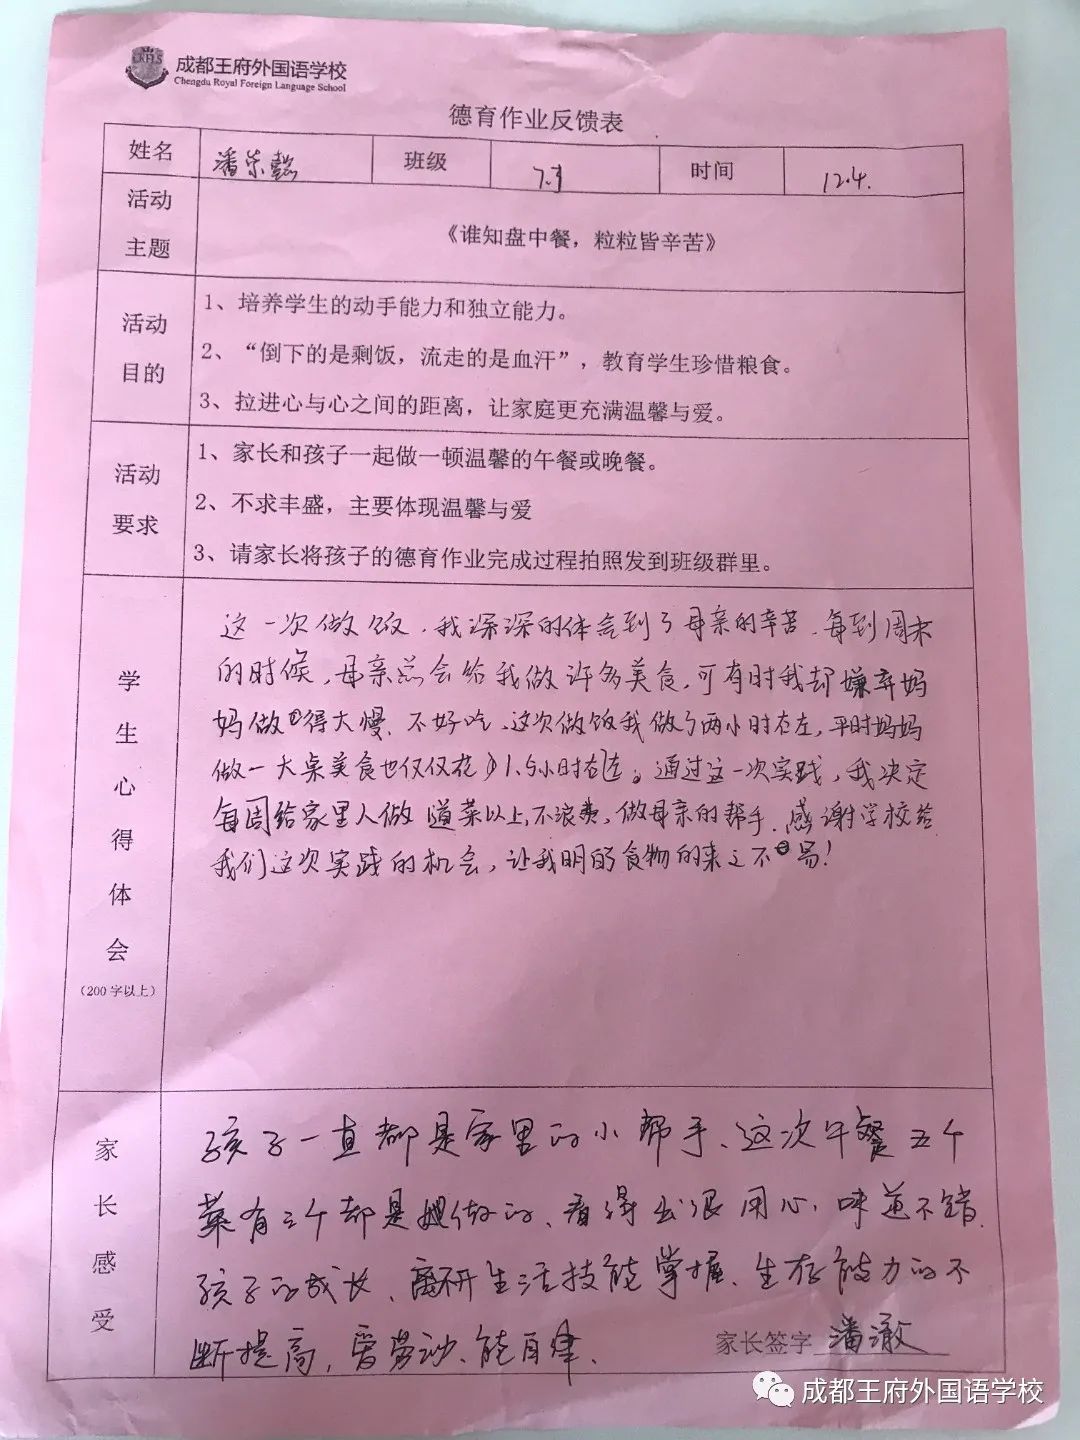 CRFLS
成都王府外国语学校
Chengdu Royal Foreign Language School
德育作业反馈表
姓名 潘 班级 7.3 时间 12.4.
活动主题 《谁知盘中餐，粒粒皆辛苦》
活动目的
1、培养学生的动手能力和独立能力。
2、“倒下的是剩饭，流走的是血汗”，教育学生珍惜粮食。
3、拉进心与心之间的距离，让家庭更充满温馨与爱。
活动要求
1、家长和孩子一起做一顿温馨的午餐或晚餐。
2、不求丰盛，主要体现温馨与爱
3、请家长将孩子的德育作业完成过程拍照发到班级群里。
学生心得体会
（200字以上）
这一次做饭，我深深的体会到了母亲的辛苦，每到周末
的时候，母亲总会给我做许多美食，可有时我却嫌弃妈
妈做得太慢、不好吃，这次做饭我做了两小时左右，平时妈妈
做一大桌美食也仅仅花了1.5小时左右。通过这一次实践，我决定
每周给家里人做 道菜以上，不浪费，做母亲的帮手，感谢学校给
我们这次实践的机会，让我明白食物的来之不易！
家长感受
孩子一直都是家里的小帮手、这次午餐五个
菜有三个都是她做的、看得出很用心，味道不错，
孩子的成长、离不开生活技能掌握、生存能力的不
断提高，爱劳动、能自律、
家长签字 潘澈
成都王府外国语学校